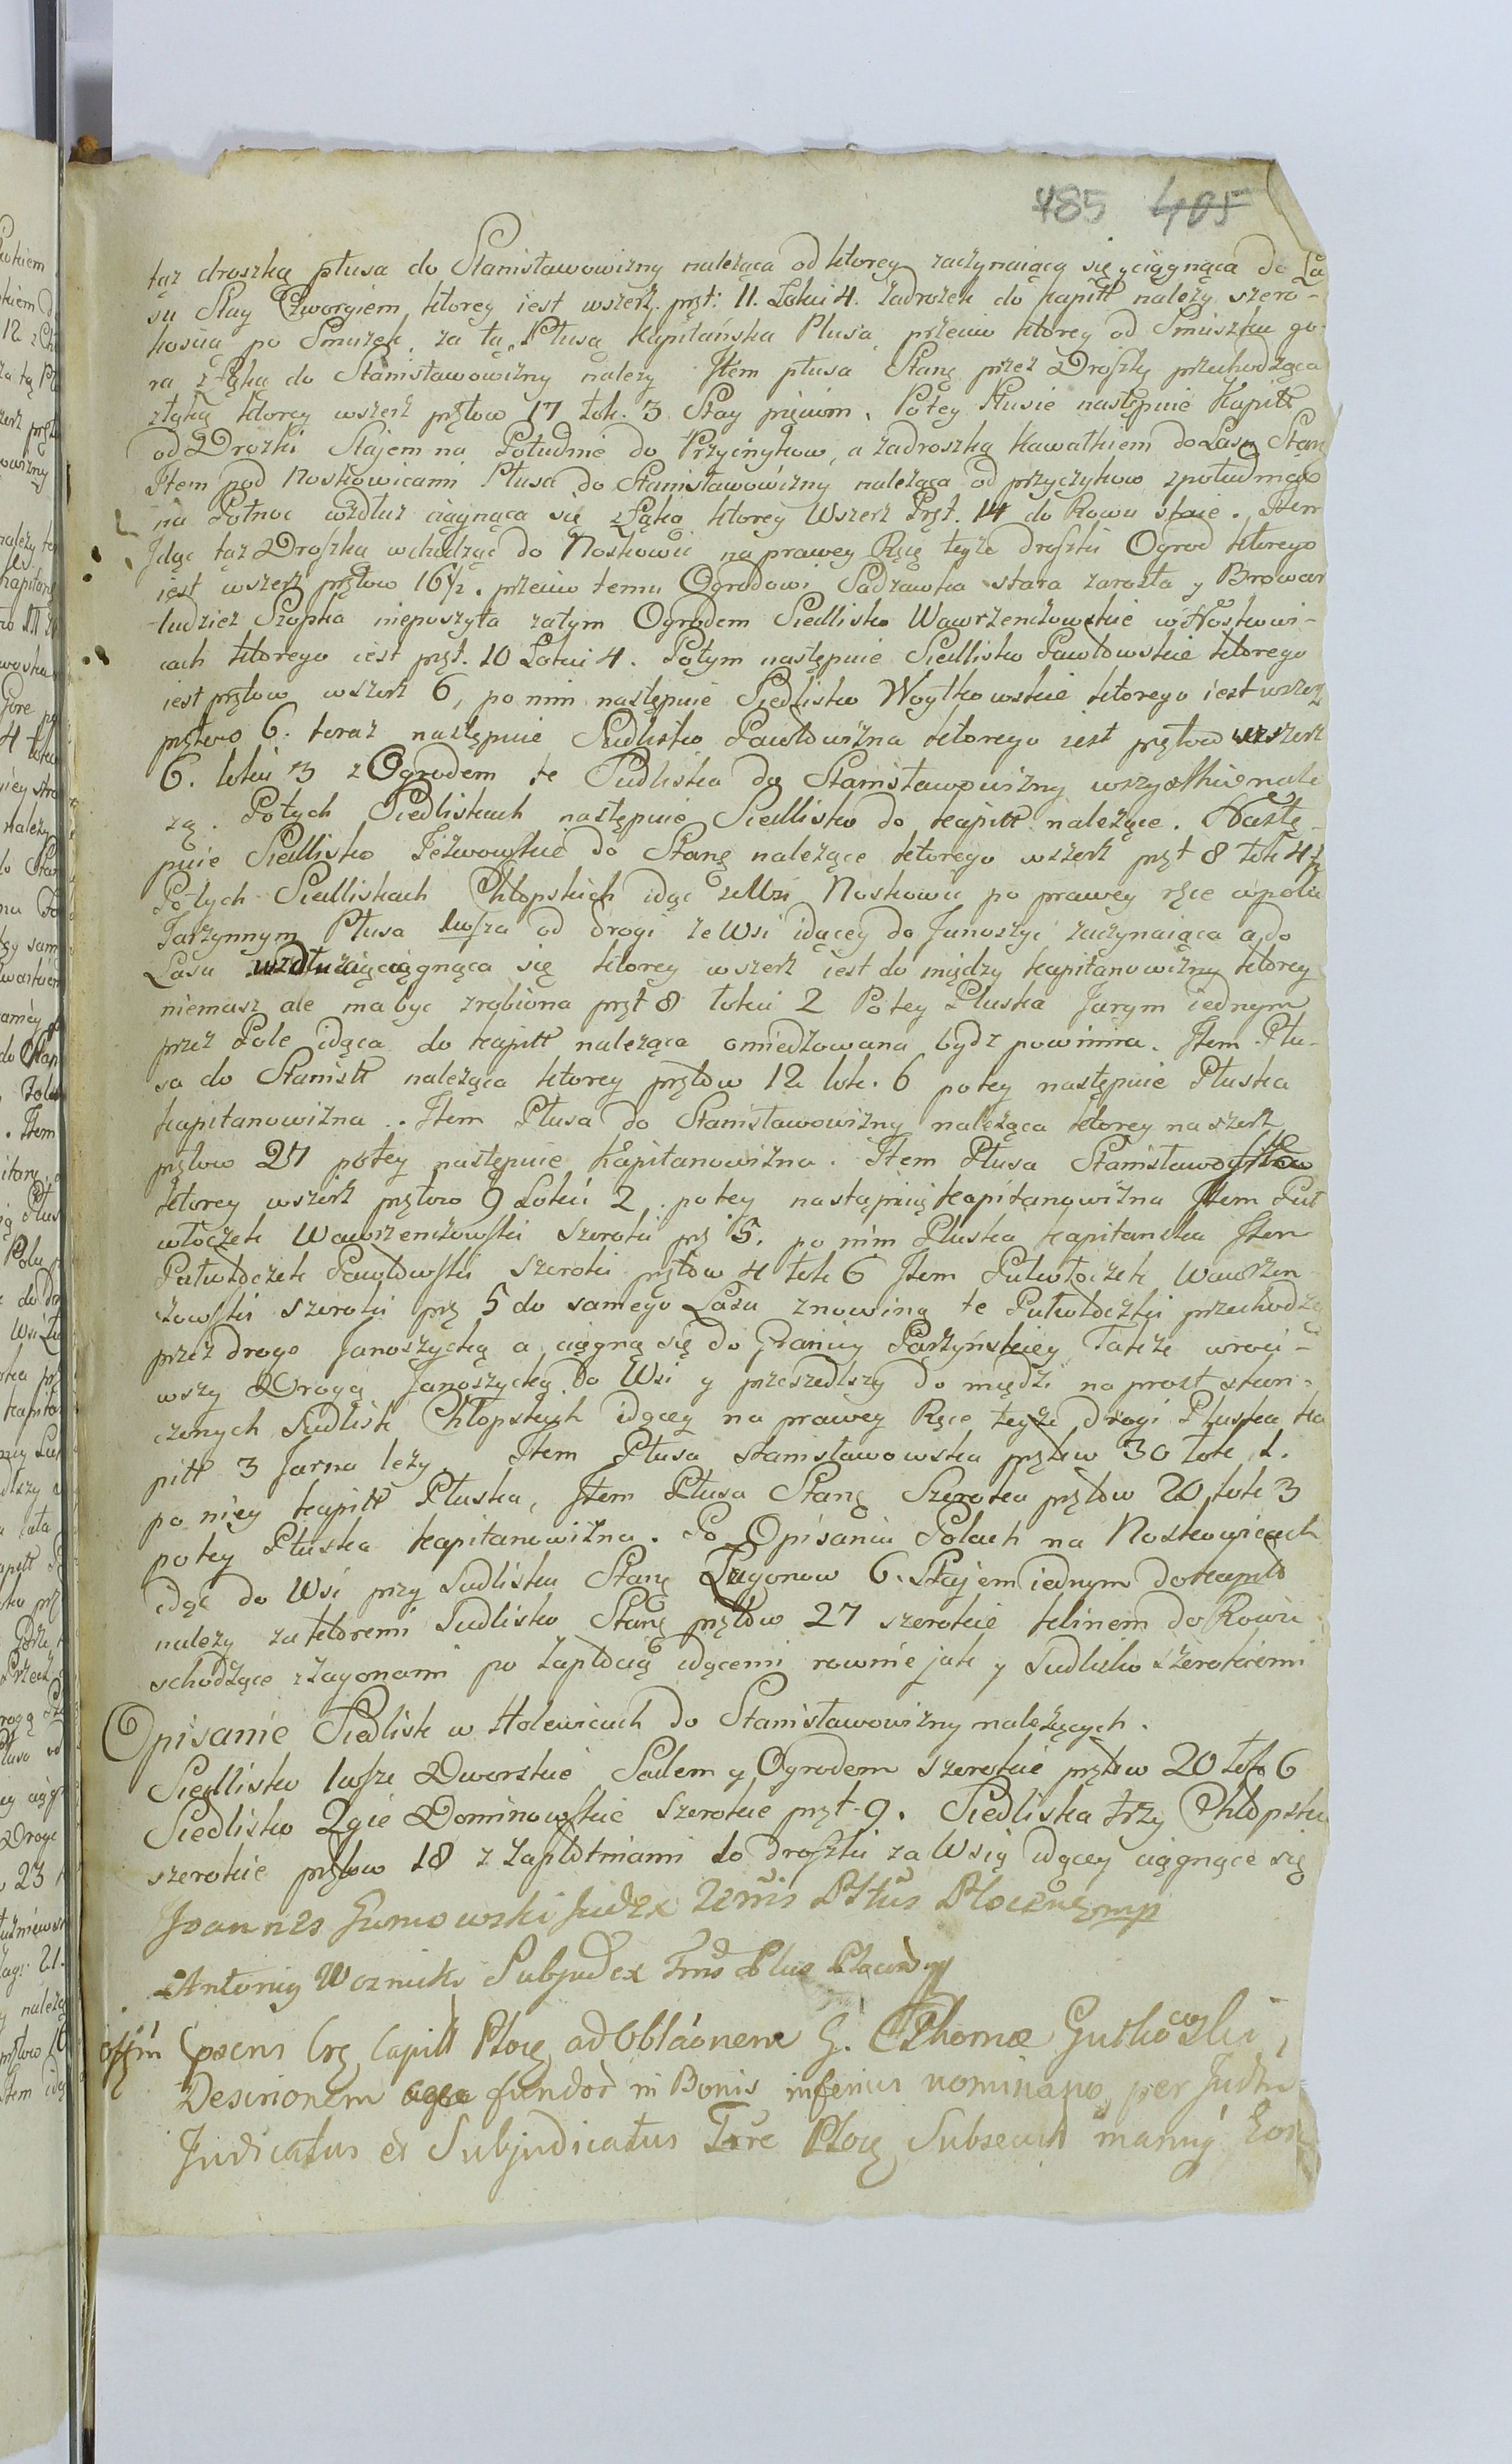 485 405
tąż droszką płusa do Stanisławowizny należąca od ktorey zaczynaiąca się y ciągnąca do La
su Stay Czworgiem, ktorey iest wszerz. pręt: 11. Łokci 4. Zadrożek do kapitt należy szero-
kością po Smużek, za tą Płusą Kapitańska Płusa, przeciw ktorey od Smuszku go-
ra z Łąką do Stanisławowizny należy Item płusa Stanę przez Droszkę przechodząca
złąką ktorey wszerz prętow 17 łok. 3 Stay pięcim. Potey Płusie następuie Kapitt
od Drożki Stajem na Południe do Przycinkow, a zadroszką kawałkiem do Lasu Stan
Item pod Noskowicami Płusa do Stanisławowizny należąca od przyczykow zpołudnia
na Połnoc wzdłuz ciągnąca się z Łąką ktorey Wszerz Pręt. 14 do Rowu staie. Item
Idąc tąż Droszką wchodząc do Noskowic na prawey Ręcę teyże droszki Ogrod ktorego
iest wszerz prętow 16½. przeciw temu Ogrodowi Sadzawka stara zarosła y Browar
tudziez Szopka nieposzyta zatym Ogrodem Siedlisko Wawrzenczowskie w Noskowi-
cach ktorego iest pręt. 10 Łokci 4. Potym następuie Siedlisko Pawłowskie ktorego
iest prętow wszerz 6, po nim następuie Siedlisko Woytkowskie ktorego iest wszerz
prętow 6. teraz następuie Siedlisko Pawłowizna ktorego iest prętow wszerz
6. łokci 3 z Ogrodem te Siedliska do Stanisławowizny wszystkie nale
żą. Potych Siedliskach następuie Siedlisko do kapitt należące. Nastę-
puie Siedlisko Jeżwowskie do Stanę należące ktorego wszerz pręt 8 łok 4½
Potych Siedliskach Chłopskich idąc zeWsi Noskowic po prawey ręce wpolu
Jarzynnym Płusa 1wsza od drogi ze Wsi idącey do Janoszyc zaczynaiąca a do
Lasu wzdłuż ciągnąca się ktorey wszerz iest do między kapitanowizny ktorey
niemasz ale ma byc zrobiona pręt 8 łokci 2 Potey Płuska Jarym iednym
przez Pole idąca do kapitt należąca omiedzowana bydz powinna. Item Płu-
sa do Stanisł należąca ktorey prętow 12 łok. 6 potey następuie Płuska
kapitanowizna. Item Płusa do Stanisławowizny należąca ktorey na szerz
prętow 21 potey następuie Kapitanowizna. Item Płusa Stanisławowska
ktorey wszerz prętow 9 Łokci 2. potey nastąpuie kapitanowizna Item Puł
włoczek Wawrzenczowski szeroki prę 5. po nim Płuska kapitanska Item
Pułwłoczek Pawłowski szeroki prętow 4 łok 6 Item Pułwłoczek Wawrzen
zowski szeroki prę 5 do samego Lasu znowiną te Pułwłoczki przechodzą
przez drogę Janoszycką a ciągną się do Granicy Parzyńskiey Także wroci-
wszy Drogą Janoszycką do Wsi y przeszedlszy do międzi na prost skon-
czonych Siedlisk Chłopskich idącey na prawey Ręce teyże drogi Płuska ka
pitt 3 Jarna leży. Item Płusa stanisławowska prętow 30 łok 1.
po niey kapitt Płuska, Item Płusa Stanę Szeroka prętow 20 łok 3
potey Płuska kapitanowizna. Po Opisaniu Polach na Noskowicach
idąc do Wsi przy Siedlisku Stanę Zagonow 6. Stajem iednym do kapitt
należy za ktoremi Siedlisko Stanę prętow 27 szerokie klinem do Rowu
schodzące z Zagonami po Zapłocią idącemi rownie jak y Siedlisko szerokiemi
Opisanie Siedlisk w Holewicach do Stanisławowizny należących.
Siedlisko 1wsze Dworskie Sadem y Ogrodem szerokie prętow 20 łok 6
Siedlisko 2gie Dominowskie szerokie pręt 9. Siedliska trzy Chłopskie
szerokie prętow 18 z Zapłotniami do droszki za Wsią idącey ciągnące się
Joannes Gumowski Judex Terris Pttus Plocens mp
Antoniy Woznicki Subjudex
Offm Cpsens Crę Capitt Plocę ad Oblaonem G. Thomæ Gutkowski,
Descrionem fundor in Bonis inferius nominatis, per Judm
Judicatus et Subjudicatus Terre Plocę Subsecut manuq